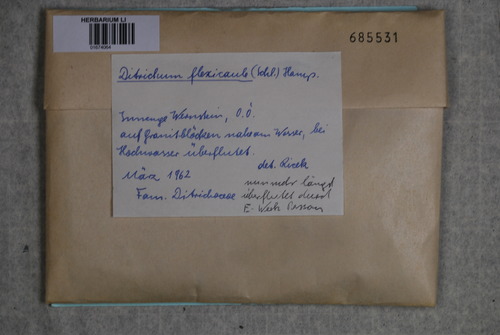 HERBARIUM LI
01674064
685531
Ditrichum flexicaule (Schl.) Hampe.
Innenge Wernstein, O.Ö.
auf Granitblöcken nahe am Wasser, bei
Hochwasser überflutet.
det. Ricek
März 1962
nunmehr längst
Fam. Ditrichaceae
überflutet durch
E. Werk